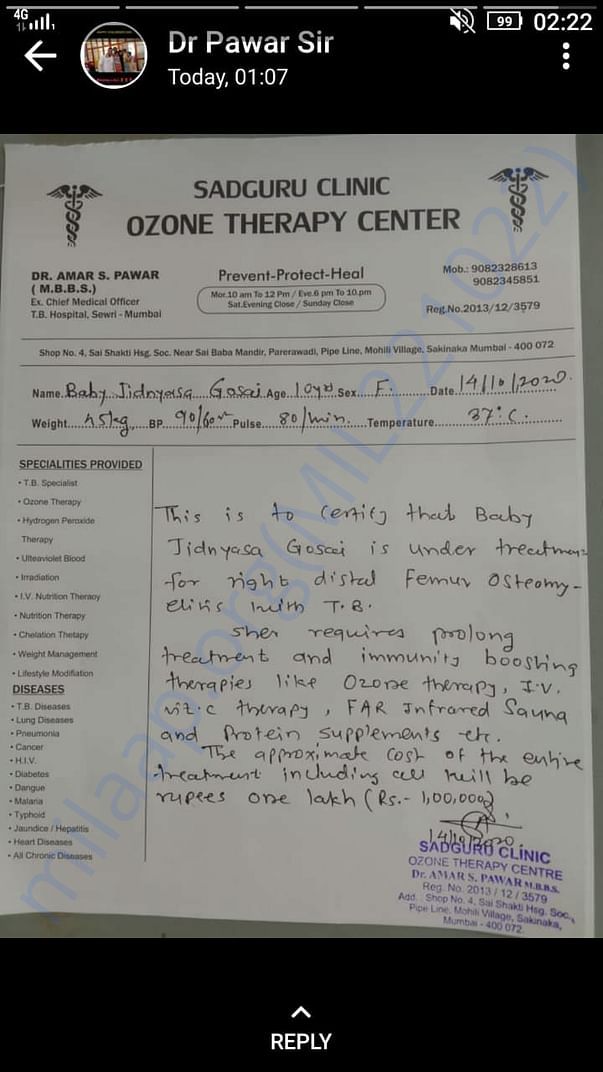 4G
99
02:22
Dr Pawar Sir
Today, 01:07
SADGURU CLINIC
OZONE THERAPY CENTER
DR. AMAR S. PAWAR
( M.B.B.S.)
Ex. Chief Medical Officer
T.B. Hospital, Sewri - Mumbai
Prevent-Protect-Heal
Mor.10 am To 12 Pm / Eve.6 pm To 10.pm
Sat.Evening Close / Sunday Close
Mob.: 9082328613
9082345851
Reg.No.2013/12/3579
Shop No. 4, Sai Shakti Hsg. Soc. Near Sai Baba Mandir, Parerawadi, Pipe Line, Mohili Village, Sakinaka Mumbai - 400 072
Name. Baby Jidnyasa Gosai Age 10yrs Sex F. Date 14/10/2020.
Weight 45kg BP. 90/60 Pulse. 80/min. Temperature 37°C.
SPECIALITIES PROVIDED
• T.B. Specialist
• Ozone Therapy
• Hydrogen Peroxide
Therapy
• Ulteaviolet Blood
• Irradiation
• I.V. Nutrition Theraoy
• Nutrition Therapy
• Chelation Thetapy
• Weight Management
• Lifestyle Modifiation
DISEASES
• T.B. Diseases
• Lung Diseases
• Pneumonia
• Cancer
• H.I.V.
• Diabetes
• Dangue
• Malaria
• Typhoid
• Jaundice / Hepatitis
• Heart Diseases
• All Chronic Diseases
This is to certify that Baby
Jidnyasa Gosai is under treatment
for right distal Femur Osteomy-
elitis with T.B.
Sher requires prolong
treatment and immunity boosting
therapies like Ozone therapy, I.V.
vit.c therapy, FAR Infrared Sauna
and Protein supplements etc.
The approximate cost of the entire
treatment including all will be
rupees one lakh (Rs.- 1,00,000)
14/10/2020.
SADGURU CLINIC
OZONE THERAPY CENTRE
Dr. AMAR S. PAWAR M.B.B.S.
Reg. No. 2013 / 12 / 3579
Add. Shop No. 4, Sai Shakti Hsg. Soc.,
Pipe Line, Mohili Village, Sakinaka,
Mumbai - 400 072.
milaap.org(MIL221022)
REPLY